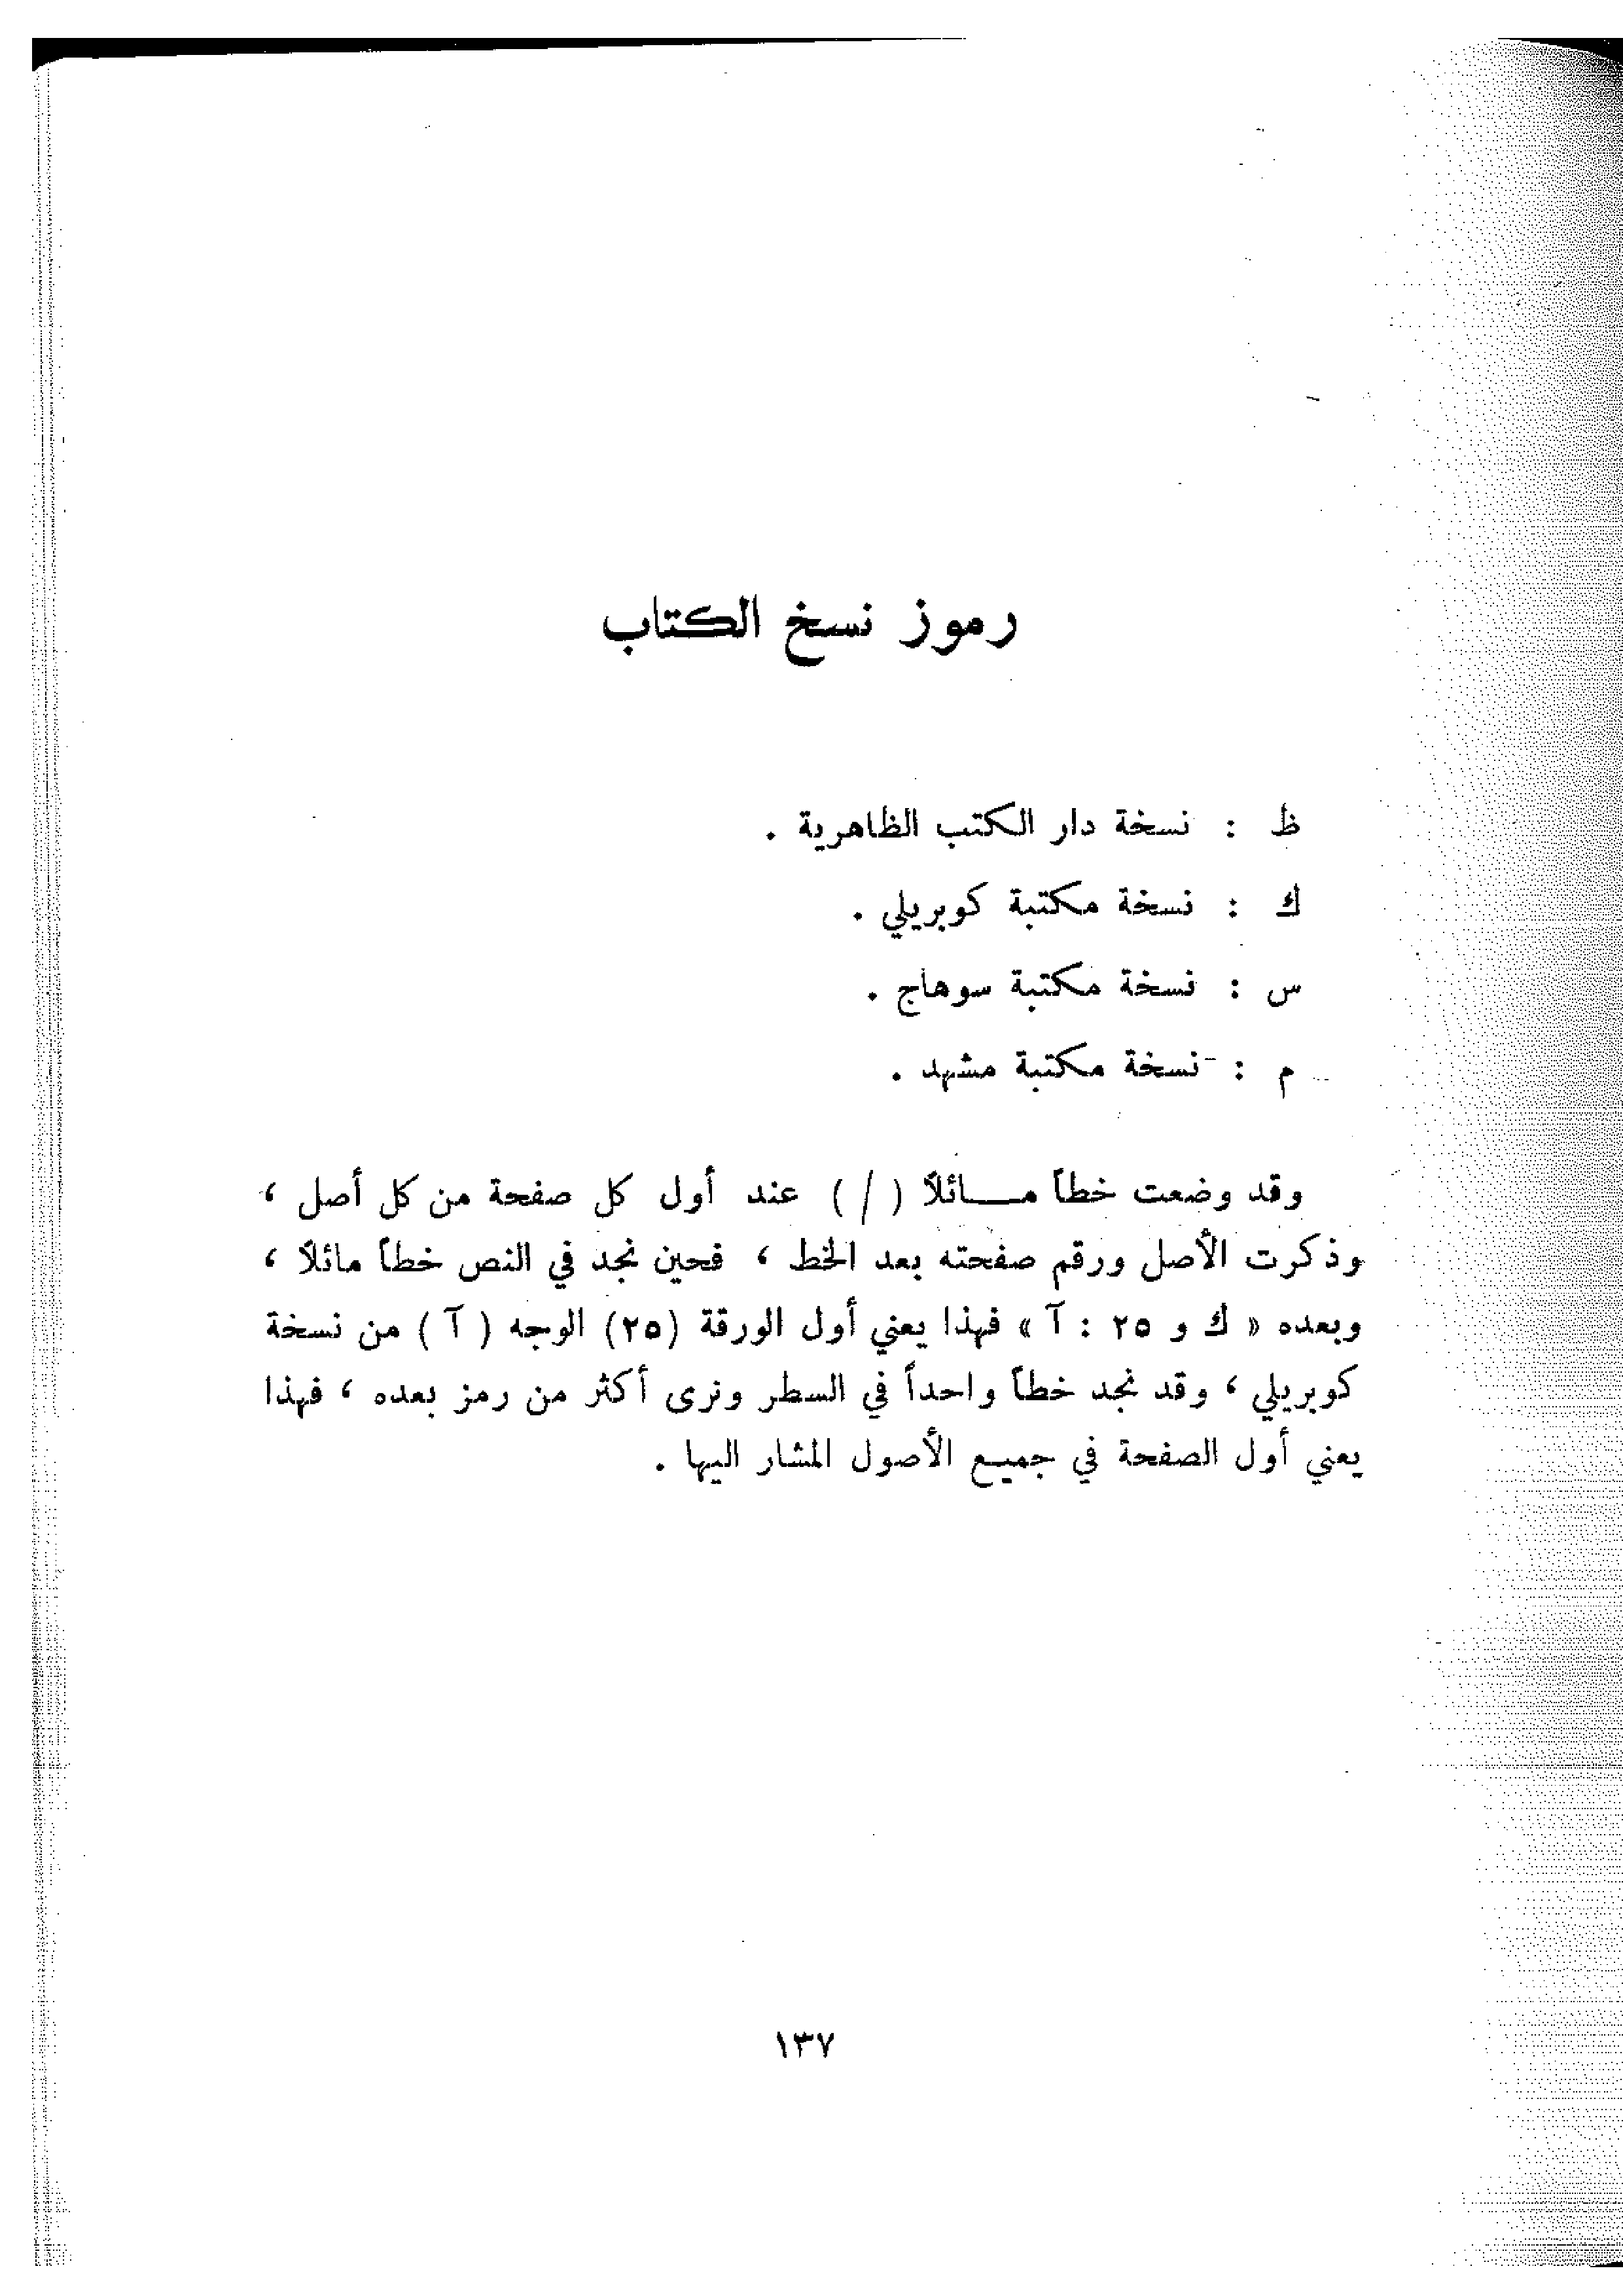 رموز نسخ الكتاب
ظ : نسخة دار الكتب الظاهرية .
ك : نسخة مكتبة كوبريلي .
س : نسخة مكتبة سوهاج .
م : نسخة مكتبة مشهد .
وقد وضعت خطاً مـــائلاً ( / ) عند أول كل صفحة من كل أصل ،
وذكرت الأصل ورقم صفحته بعد الخط ، فحين نجد في النص خطاً مائلاً ،
وبعده « ك و ٢٥ : آ » فهذا يعني أول الورقة (٢٥) الوجه ( آ ) من نسخة
كوبريلي ، وقد نجد خطاً واحداً في السطر ونرى أكثر من رمز بعده ، فهذا
يعني أول الصفحة في جميع الأصول المشار اليها .
١٣٧